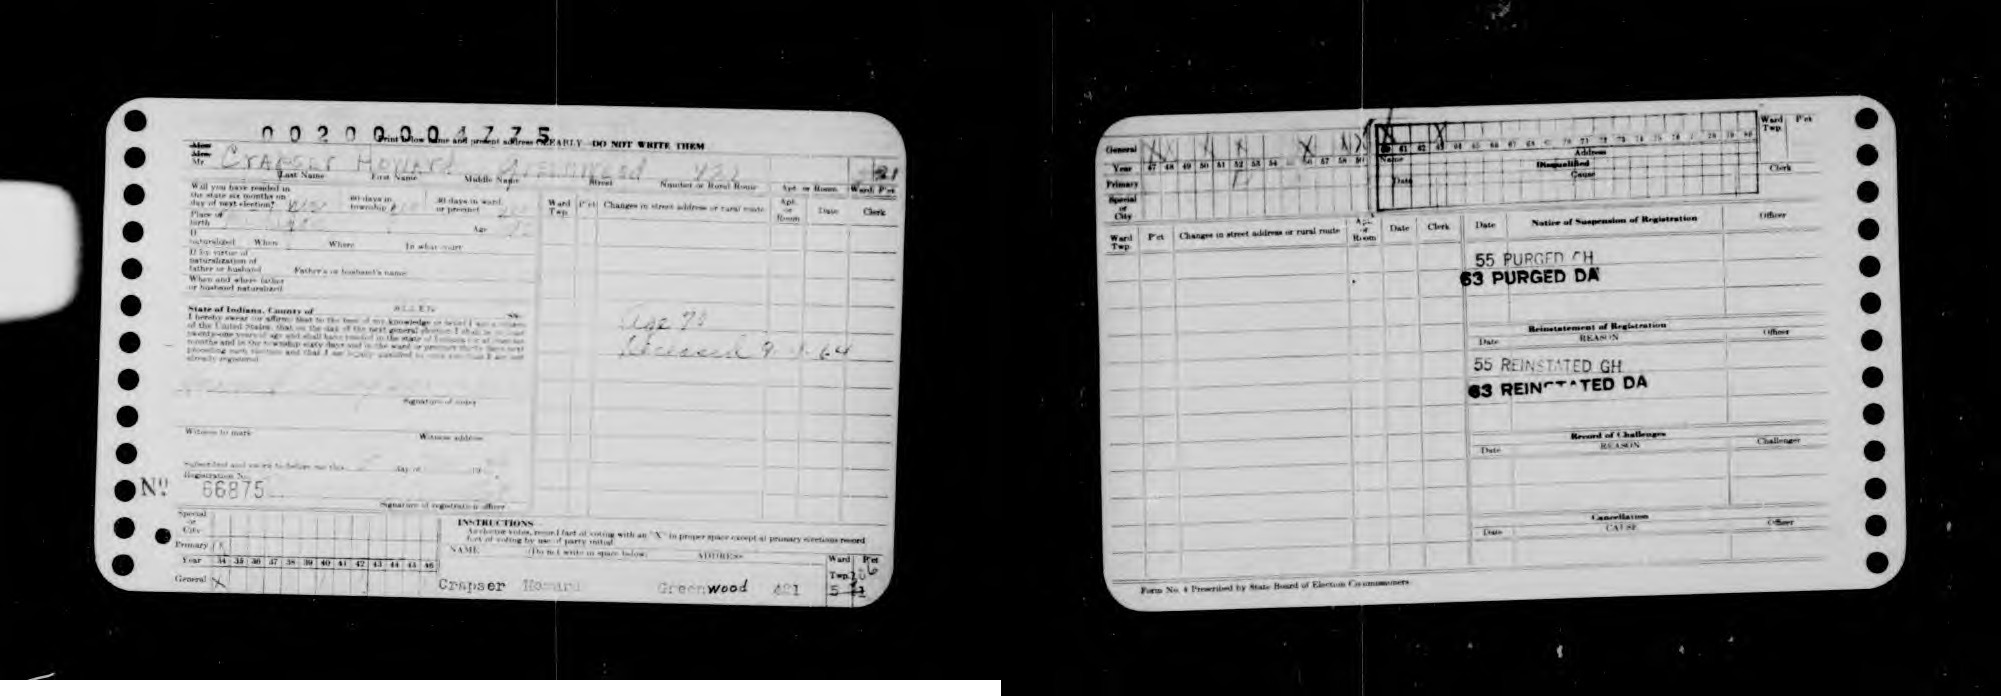 00200004775
Print below name and present address CLEARLY - DO NOT WRITE THEM
Mr Crapser Howard Greenwood 21
Last Name First Name Middle Name Street Number or Rural Route Apt. or Room Ward P'ct
Will you have resided in
the state six months on
day of next election? 60 days in
township 30 days in ward
or precinct
Place of
birth Age
If
naturalized When Where In what court
If by virtue of
naturalization of
father or husband Father's or husband's name
When and where father
or husband naturalized
State of Indiana, County of ALLEN
I hereby swear (or affirm) that to the best of my knowledge or belief I am a citizen
of the United States, that on the day of the next general election I shall be at least
twenty-one years of age and shall have resided in the state of Indiana for at least six
months and in the township sixty days and in the ward or precinct thirty days next
preceding such election and that I am legally qualified to vote and that I am not
already registered.
Signature of voter
Witness to mark Witness address
Subscribed and sworn to before me this day of 19
Registration No.
No. 66875
Signature of registration officer
Ward
Twp. P'ct Changes in street address or rural route Apt.
or
Room Date Clerk
age 70
Deceased 64
Special
or
City
Primary
Year 34 35 36 37 38 39 40 41 42 43 44 45 46
General X
INSTRUCTIONS
As elector votes, record fact of voting with an "X" in proper space except at primary elections record
fact of voting by use of party initial.
NAME (Do not write in space below) ADDRESS Ward
Twp. P'ct
Crapser Howard Greenwood 5
General X X
Year 47 48 49 50 51 52 53 54 56 57 58 59
Primary
Special
or
City
60 61 62
Name Address
Disqualified
Date Cause
Ward
Twp. P'ct
Clerk
Ward
Twp. P'ct Changes in street address or rural route Apt.
or
Room Date Clerk
Date Notice of Suspension of Registration Officer
55 PURGED GH
63 PURGED DA
Reinstatement of Registration
Date REASON Officer
55 REINSTATED GH
63 REINSTATED DA
Record of Challenges
Date REASON Challenger
Cancellation
Date CAUSE Officer
Form No. 4 Prescribed by State Board of Election Commissioners